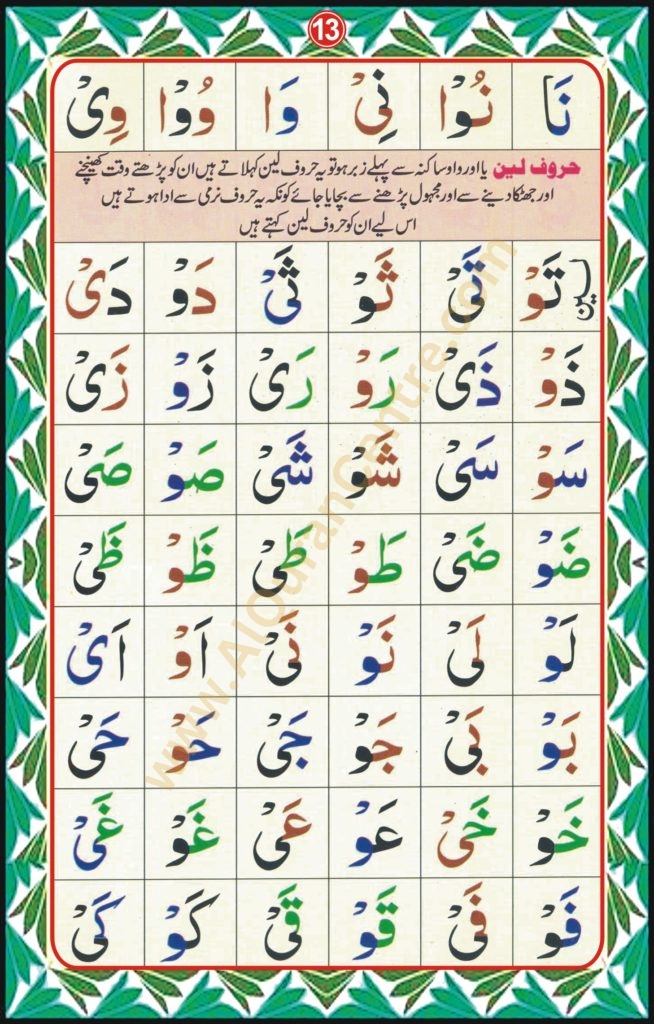 13
نَا نُوْا نِیْ وَا وُوْا وِیْ
حروف لین یا اور واو ساکنہ سے پہلے زبر ہو تو یہ حروف لین کہلاتے ہیں ان کو پڑھتے وقت کھینچنے
اور جھٹکا دینے سے اور مجہول پڑھنے سے بچایا جائے کونکہ یہ حروف نرمی سے ادا ہوتے ہیں
اس لیے ان کو حروف لین کہتے ہیں
لین تَوْ تَیْ ثَوْ ثَیْ دَوْ دَیْ
ذَوْ ذَیْ رَوْ رَیْ زَوْ زَیْ
سَوْ سَیْ شَوْ شَیْ صَوْ صَیْ
ضَوْ ضَیْ طَوْ طَیْ ظَوْ ظَیْ
لَوْ لَیْ نَوْ نَیْ اَوْ اَیْ
بَوْ بَیْ جَوْ جَیْ حَوْ حَیْ
خَوْ خَیْ عَوْ عَیْ غَوْ غَیْ
فَوْ فَیْ قَوْ قَیْ کَوْ کَیْ
www.AlQuranCentre.com